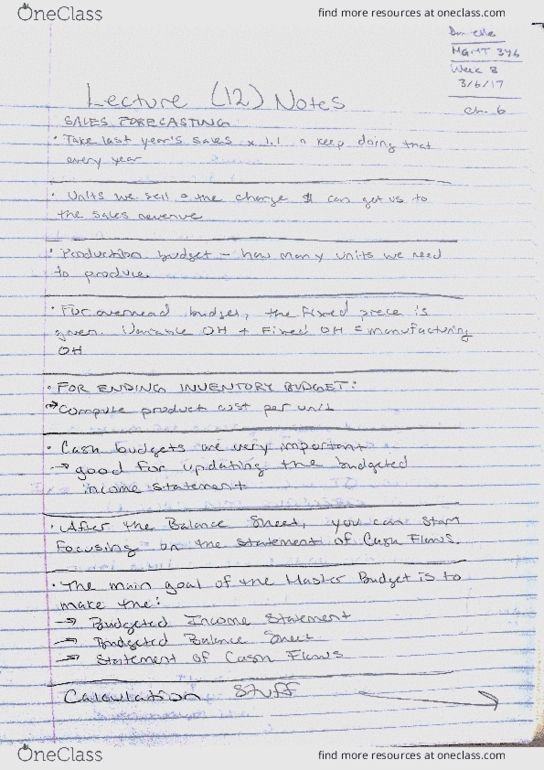 OneClass
find more resources at oneclass.com
MGMT 346
Week 8
3/6/17
Ch. 6
Lecture (12) Notes
SALES FORECASTING
• Take last year's sales x 1.1 keep doing that
every year
• Units we sell the charge $ can get us to
the sales revenue
• Production budget - how many units we need
to produce.
• For overhead budget, the fixed piece is
given. Variable OH + Fixed OH = manufacturing
OH
• FOR ENDING INVENTORY BUDGET:
→ Compute product cost per unit
• Cash budgets are very important
→ good for updating the budgeted
income statement
• After the Balance Sheet, you can start
focusing on the Statement of Cash Flows.
• The main goal of the Master Budget is to
make the:
→ Budgeted Income Statement
→ Budgeted Balance Sheet
→ Statement of Cash Flows
Calculation Stuff →
OneClass
find more resources at oneclass.com